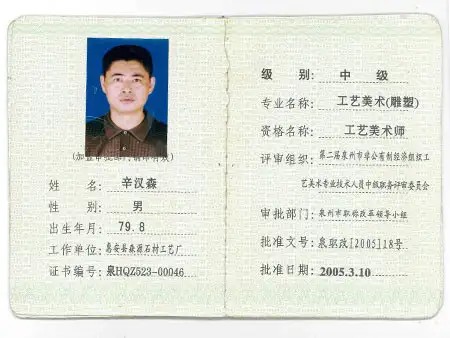 (加盖审批部门钢印有效)
姓 名: 辛汉森
性 别: 男
出生年月: 79.8
工作单位: 惠安县森源石材工艺厂
证书编号: 泉HQZ523-00046
级 别: 中 级
专业名称: 工艺美术(雕塑)
资格名称: 工艺美术师
评审组织: 第二届泉州市非公有制经济组织工
艺美术专业技术人员中级职务评审委员会
审批部门: 泉州市职称改革领导小组
批准文号: 泉职改[2005]18号
批准日期: 2005.3.10